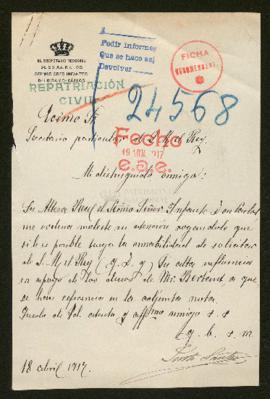 EL SECRETARIO TESORERO
DE SS.AA.RR. LOS
SERMOS SRES INFANTES
Pedir informes
Que se haco así
Devolver
FICHA
REPATRIACIÓN
CIVIL
24568
Excmo Sr
Secretario particular de S. M. el Rey.
Fecho
19 ABR. 917
e.a.e.
Mi distinguido amigo:
Su Alteza Real el Sermo Señor Infante Don Carlos
me ordena moleste su atención rogandole que
si le es posible tenga la amabilidad de solicitar
de S. M. el Rey (q. D. g.) Su alta influencia
en apoyo de los deseos de Mr. Bertrand a que
se hace referencia en la adjunta nota.
Queda de Vd. atento y affmo amigo s. s.
q. b. s. m.
18 abril 1917.